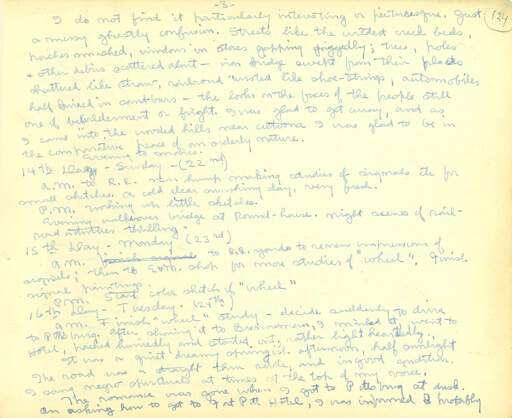 -3-
124
I do not find it particularly interesting or picturesque. Just
a messy ghastly confusion. Streets like the wildest creek beds,
porches smashed, windows in stores gapping jaggedly; trees, poles
& other debris scattered about - iron bridge swept from their places
shattered like straw, railroad twisted like shoe-strings, automobiles
half buried in sand-bars - the looks on the faces of the people still
one of bewilderment or fright. I was glad to get away, and as
I came into the wooded hills near Altoona I was glad to be in
the comparative peace of an orderly nature.
Evening to movies.
14th Day - Sunday - (22nd)
a.m. to R.R. near hump making studies of signals etc for
small sketches. A cold clear sunshiny day, very fresh.
P.M. working on little sketches.
Evening walk over bridge at Round-house. Night scenes of rail-
road activities thrilling.
15th Day - Monday (23rd)
a.m. to R.R. yards to renew impressions of
signals; then to E&M. shop for more studies of "wheel". Finish
signal paintings.
P.M. Start color sketch of "wheel"
16th Day - Tuesday - (24th)
a.m. Finish "wheel" study - decide suddenly to drive
to Pittsburg. After showing it to Brenneman, I mailed it, went to
Hotel, packed hurriedly and started out, rather light heartedly.
It was a quiet dreamy springish afternoon, half sunlight
The road was a straight then road, and in good condition.
I sang negro spirituals at times at the top of my voice.
The romance was gone when I got to Pittsburg at dusk.
On asking how to get to Fort Pitt Hotel, I was informed & probably